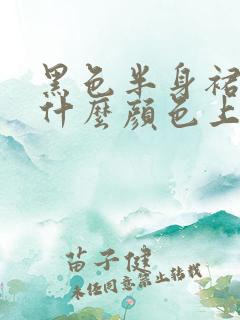 黑色半身裙
什麼顏色上
苗子健
未任同意禁止转载